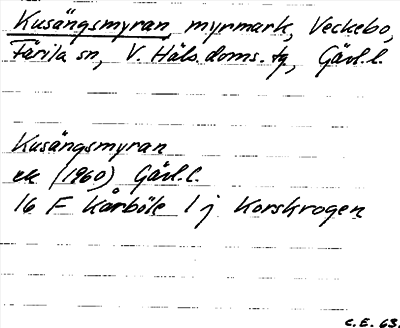 Kusängsmyran, myrmark, Veckebo,
Färila sn, V. Häls. doms. tg, Gävl. l.
Kusängsmyran
ek (1960) Gävl. l.
16 F Kårböle 1 j Korskrogen
C.E. 63.